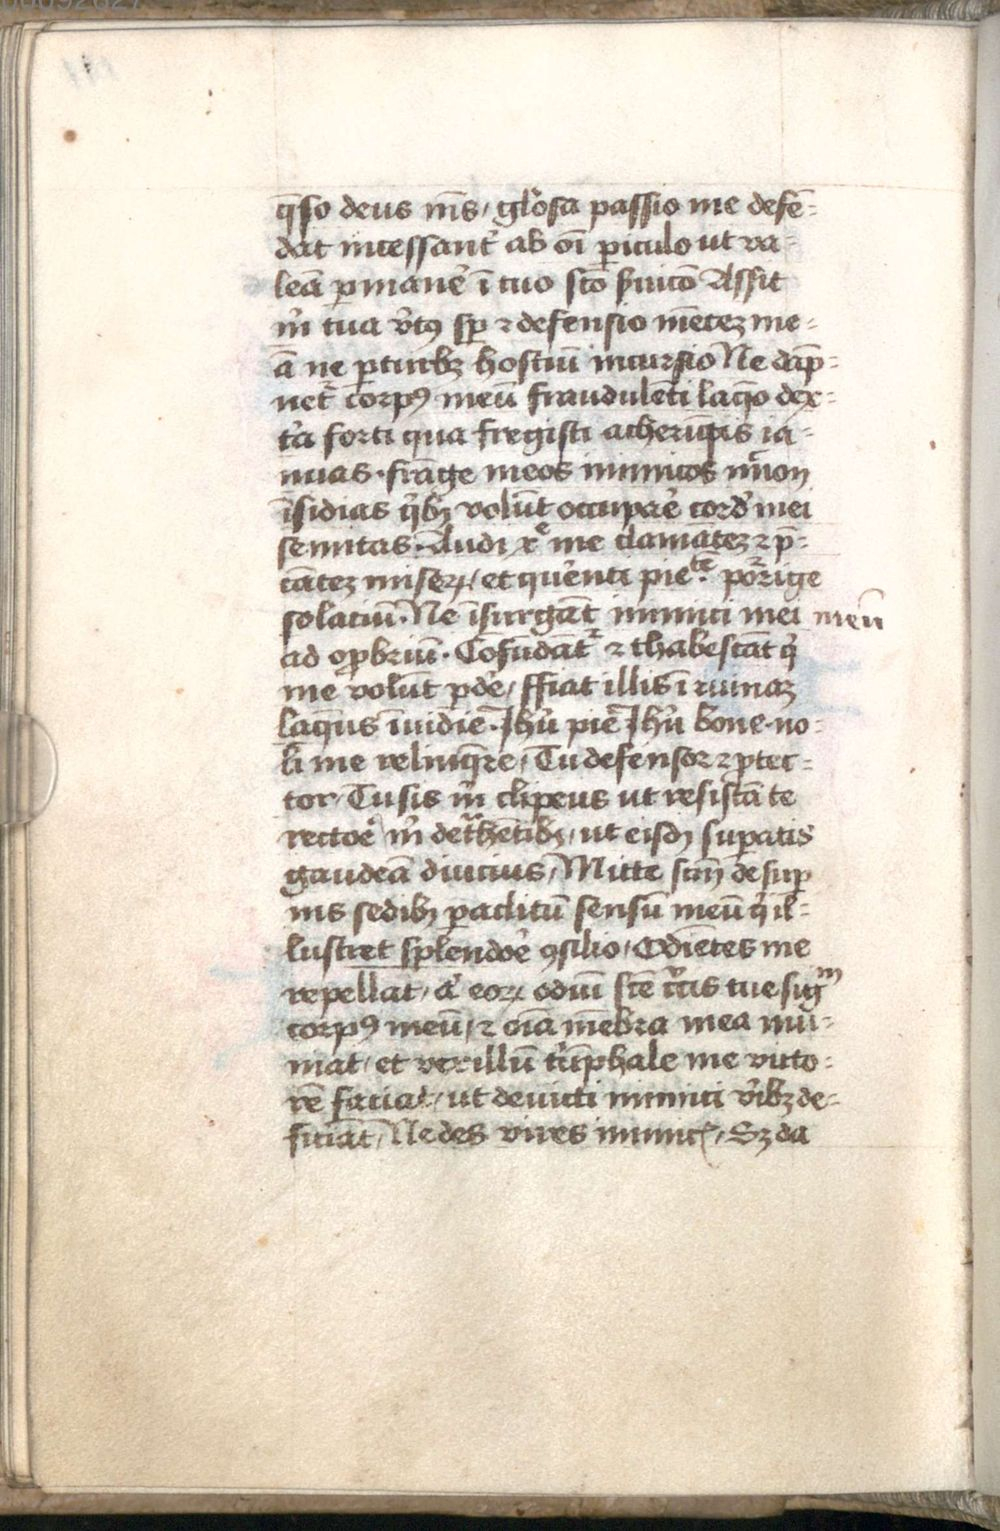 q̄so deus m̄s / gl'osa passio me defē-
dat incessant' ab oī piculo ut va-
leā pmanē' ī tuo sc̄o s'uico Assit
m̄ tua v̓tꝰ sp̄ ⁊ defensio mētez me-
ā ne pturbꝫ hostiū incursio Ne dāp-
net corpꝰ meū fraudulēti laq̄o dex-
t'a forti qua fregisti acheru̅tis ia-
nuas · frāge meos inimicos
īsidias q̓bꝫ volūt occupare' cord' mei
semitas · Audi xᵉ me clamātez ⁊ p̄-
cātez miseꝝ / et quer̄enti pieᵗᵉ · por̄rige
solaciū · Ne īsurgāt inimici mei meū
ad opbriū · Cōfūdāt' ⁊ thabescāt q̓
me volūt pdē' / ffiat illis ī ruinaꝫ
laq̄us īuidie · Jhū pie Jhū bone · no-
li me relinq̄re / Tu defensor ⁊ ptec-
tor / Tu sis m̄ clipeus ut resistā te
rectoē' m̄ det'hētibꝫ / ut eisdꝫ supatis
gaudeā diucius / Mitte sc̄m de sup
nis sedibꝫ paclitū sensū meū q̓ il-
lustret splendoē' ꝯsilio / Odiētes me
repellat / a' eoꝝ odiū sc̄e c̓cis tue sigᵐ
corpꝰ meū / ⁊ oīa mēbra mea mu-
niat / et vexillū t'ūphale me victo-
rē faciat / ut deuicti inimici v̓ibꝫ de-
ficiāt / Ne des vires inimic' / Sꝫ da